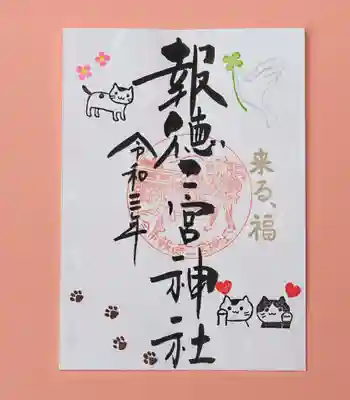 来る、福
報徳二宮神社
令和三年